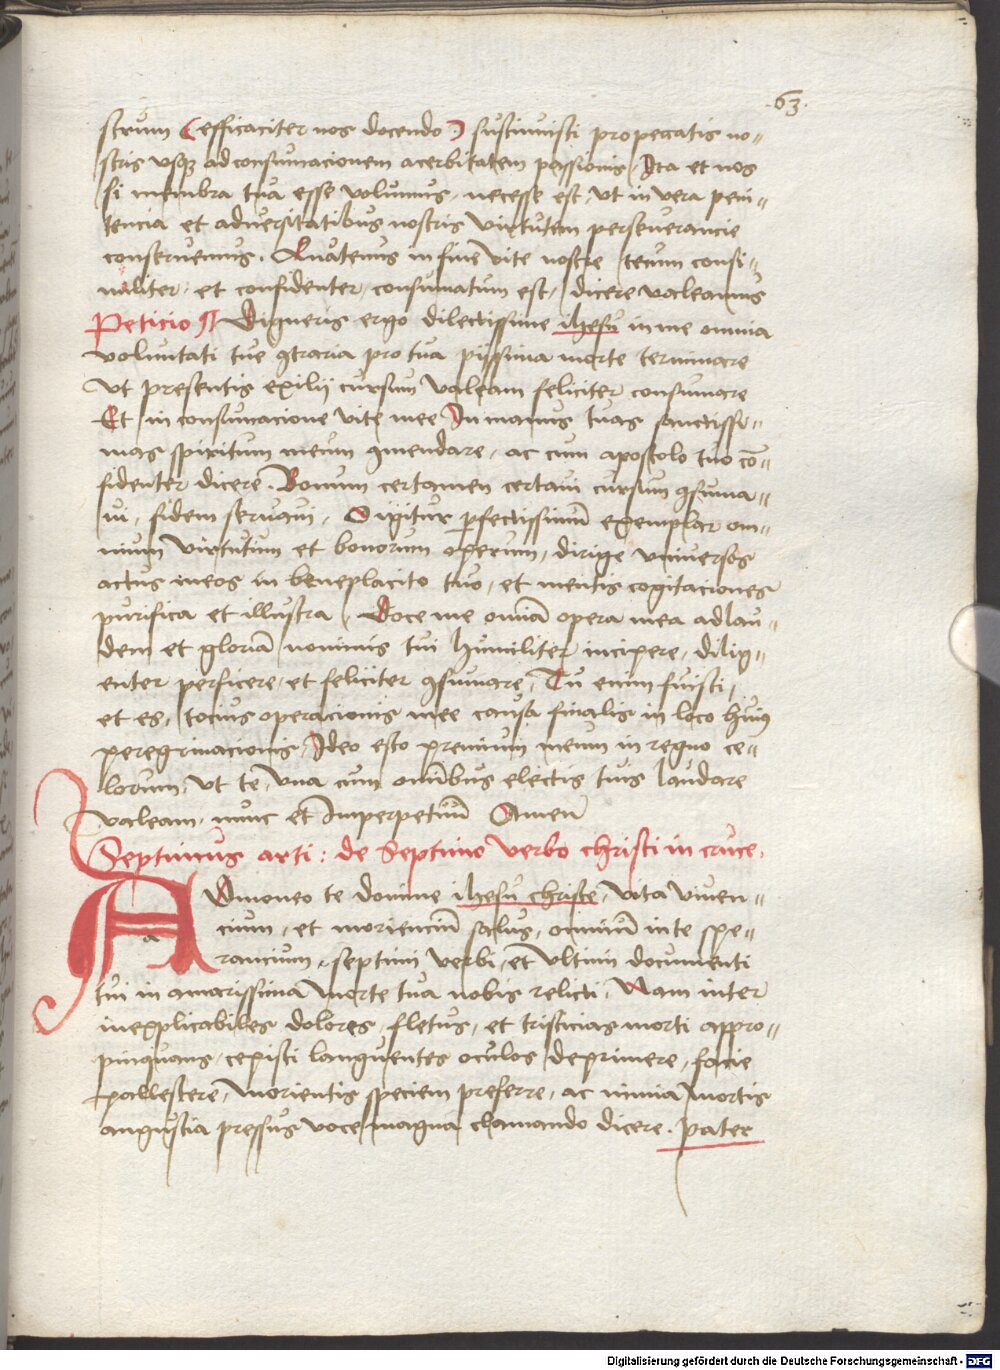 63
strum (efficaciter nos docendo) sustinuisti pro peccatis no-
stris vsqz ad consumacionem acerbitatem passionis, Ita et nos
si membra tua esse volumus, necesse est, vt in vera peni-
tencia et aduersitatibus nostris virtutem perseuerancie
conseruemus. Quatenus in fine vite nostre tecum consi-
naliter, et confidenter, consumatum est, dicere valeamus
Peticio ¶ Digneris ergo dilectissime ihesu in me omnia
voluntati tue 9traria pro tua pijssima morte terminare
vt presentis exilij cursum valeam feliciter consumare
Et in consumacione vite mee In manus tuas sanctissi-
mas spiritum meum 9mendare, ac cum apostolo tuo co̅-
fidenter dicere. Bonum certamen certaui cursum 9suma-
ui, fidem seruaui, O igitur perfectissimu̅ exemplar om-
nium virtutum et bonorum operum, dirige vniuersos
actus meos in beneplacito tuo, et mentis cogitaciones
purifica et illustra, Doce me omnia̅ opera mea ad lau-
dem et gloria̅ nominis tui humiliter incipere, dilig-
enter perficere, et feliciter 9sumare, Tu enim fuisti,
et es, tocius operacionis mee causa finalis in loco hui9
peregrinacionis, Ideo esto premium meum in regno ce-
lorum, vt te, vna cum omnibus electis tuis laudare
valeam, nunc et Imperpetuu̅ Amen
Septimus arti: de Septimo verbo christi in cruce.
ADmoneo te domine ihesu christe, vita viuen-
cium, et moriencium̅ salus, omnium̅ in te spe-
rancium, septimi verbi, et vltimi documenti
tui in amarissima morte tua nobis relicti, Nam inter
inexplicabiles dolores, fletus, et tristicias morti appro-
pinquans, cepisti languentes oculos deprimere, facie
pallescere, morientis speciem preferre, ac nimia mortis
angustia pressus voce magna clamando dicere. Pater
Digitalisierung gefördert durch die Deutsche Forschungsgemeinschaft - DFG